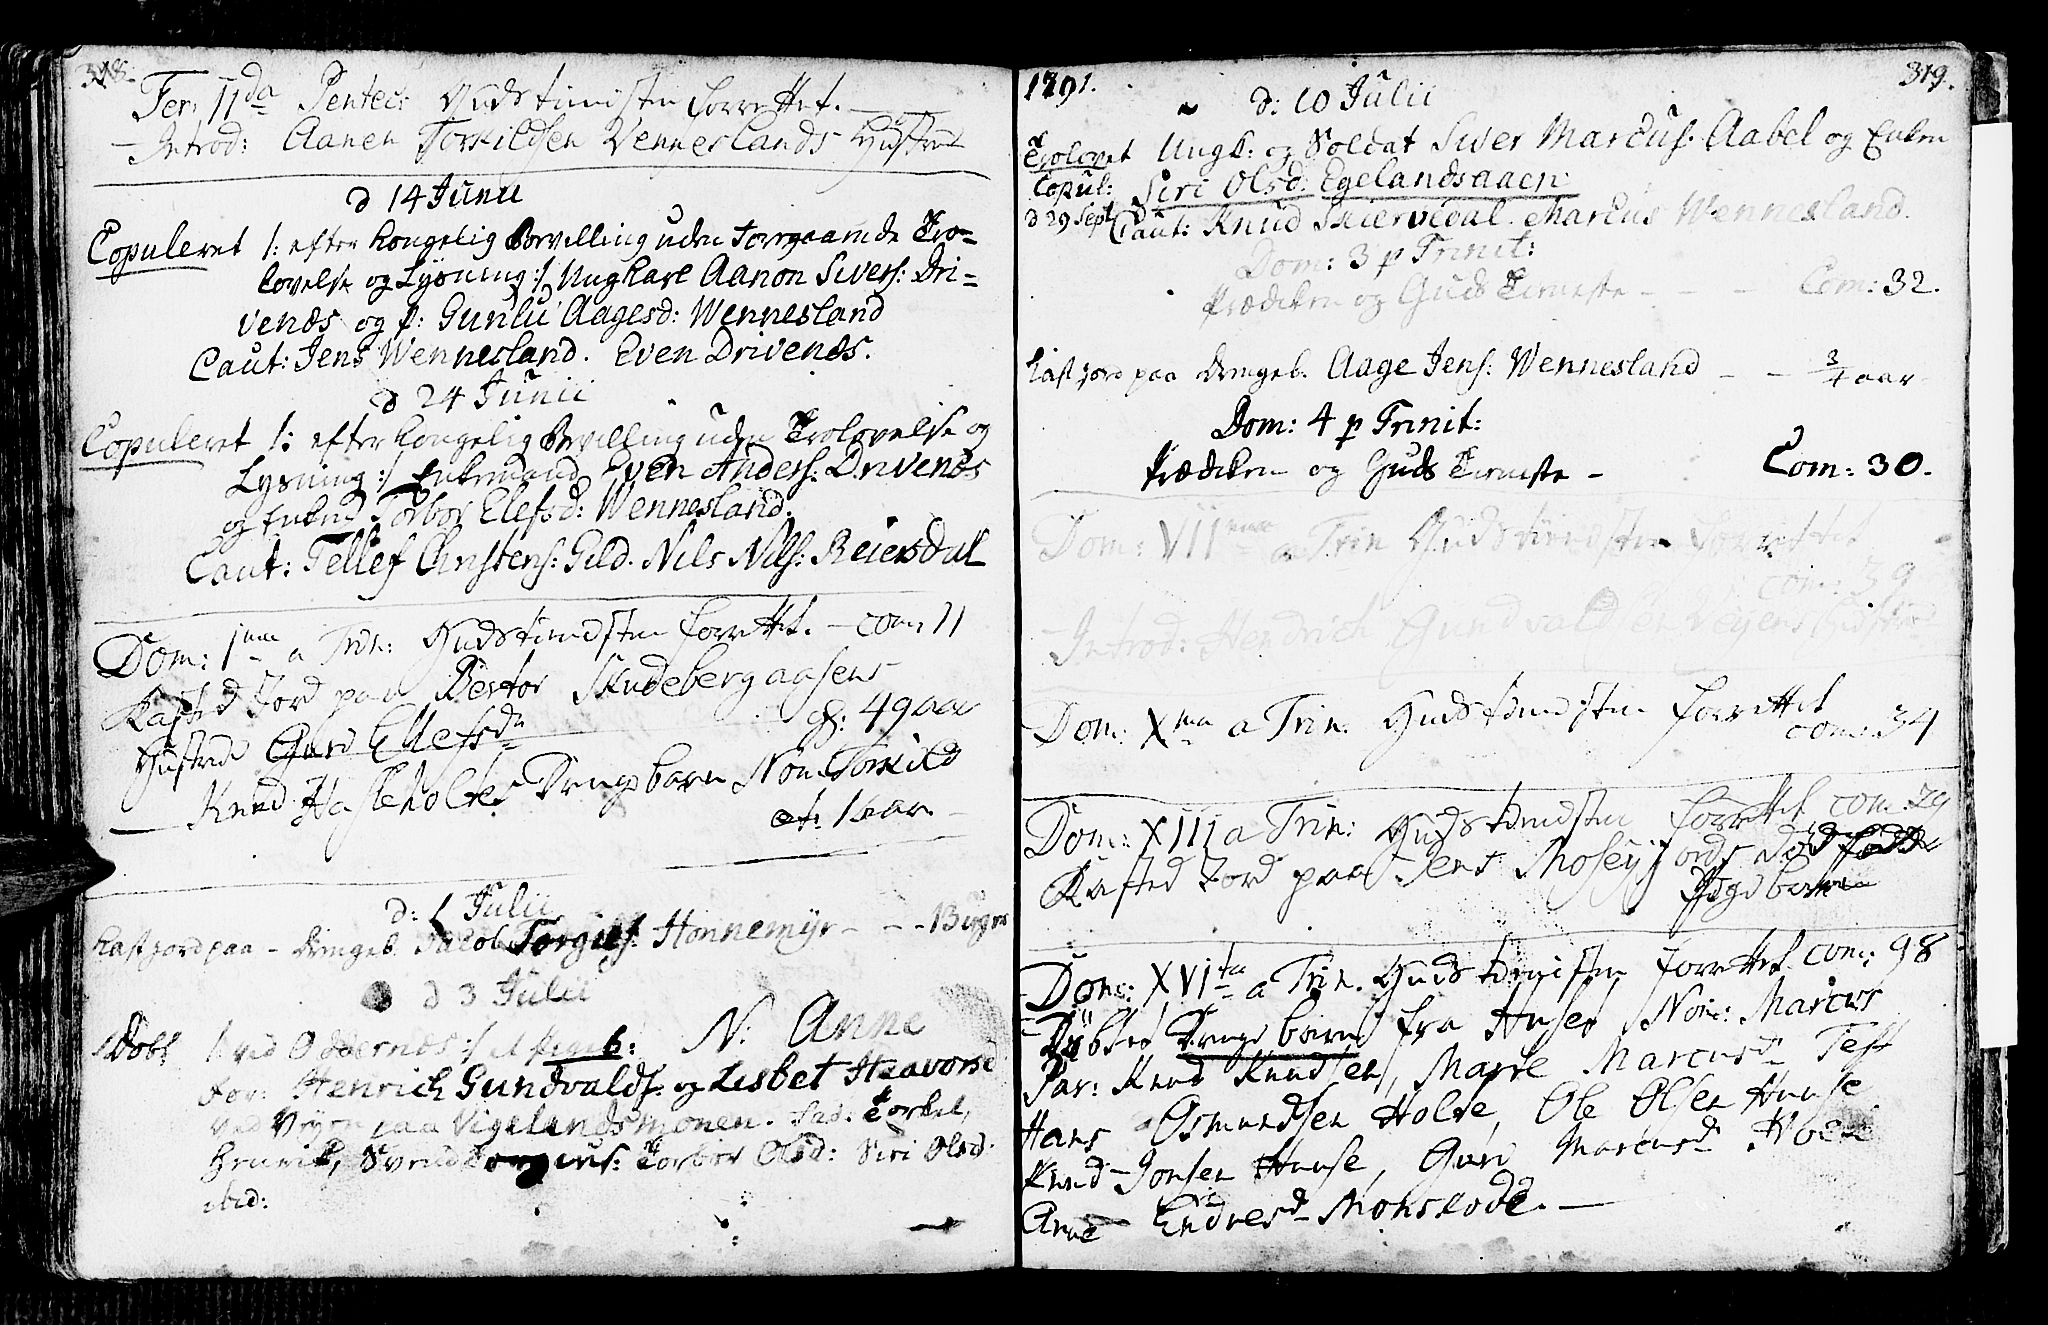 318.
Fer: 11da Pentec: Gudstienisten forrettet.
Introd: Aanen Torkildsen Venneslands Hustrue
d 14 Junii
Copuleret /: efter kongelig Bevilling uden foregaaende Tro=
lovelse og Lysning :/ Ungkarl Aanon Sivers: Dri=
venæs og p: Gunlu Aagesd: Wennesland
Caut: Jens Wennesland. Even Drivenæs.
d 24 Junii
Copuleret /: efter kongelig Bevilling uden Trolovelse og
Lysning :/ Enkemand Even Anders: Drivenæs
og Enken Torbor Elefsd: Wennesland.
Caut: Tellef Christens: Gild. Nils Nils: Reiersdal
Dom: 1ma a Trin: Gudstienesten forrettet. - com: 11
Kasted Jord paa Bertor Skudebergaasens
Hustrue Guro Ellefsdr æt: 49 aar
Knud Hasleholtes Drengebarn Nom: Torkild
æt: 1 aar
d: 1 Julii
kast jord paa - drengeb. Jacob Torgiels: Honnemyr - - - 13 uger
d 3 Julii
Døbt /: ved Oddernæs :/ et pigeb: N: Anne
for: Henrich Gundvalds: og Lisbet Haavorsd
ved Veyen paa Vigelandsmonen. Fad: Torkel,
Henrik, Svend Torgius: Torbor Olsd: Siri Olsd:
ibid:
1791. 319.
d: 10 Julii
Trolovet Ungk: og Soldat Siver Marcus: Aabel og Enken
Copul: Siri Olsd: Egelandsaaen
d 29 Sept Caut: Knud Skiervedal. Marcus Wennesland.
Dom: 3 p Trinit:
Prædiken og Guds Tieneste - - - Com: 32.
kast jord paa drengeb. Aage Jens: Wennesland - - 3/4 aar
Dom: 4 p Trinit:
Prædiken og Guds Tieneste - Com: 30.
Dom: VIIma a Trin Gudstienesten forrettet
com: 39
Introd: Hendrich Gundvaldsen Veyens Hustrue
Dom: Xma a Trin. Gudstienesten forrettet
com: 34
Dom: XIII a Trin: Gudstienesten forrettet com: 29
Kasted Jord paa Jens Moseyjords død fødde
Pigebarn
Dom: XVIta a Trin. Gudstienisten forrettet. com: 98
Døbt et Drengebarn fra Huset Nom: Marcus
Par: Knud Knudsen, Marte Marcusdr Test
Hans Osmundsen Holte, Ole Olsen Hunse
Knud Jonsen Hunse, Guro Marcusdr
Anne Endresdr Monslode.